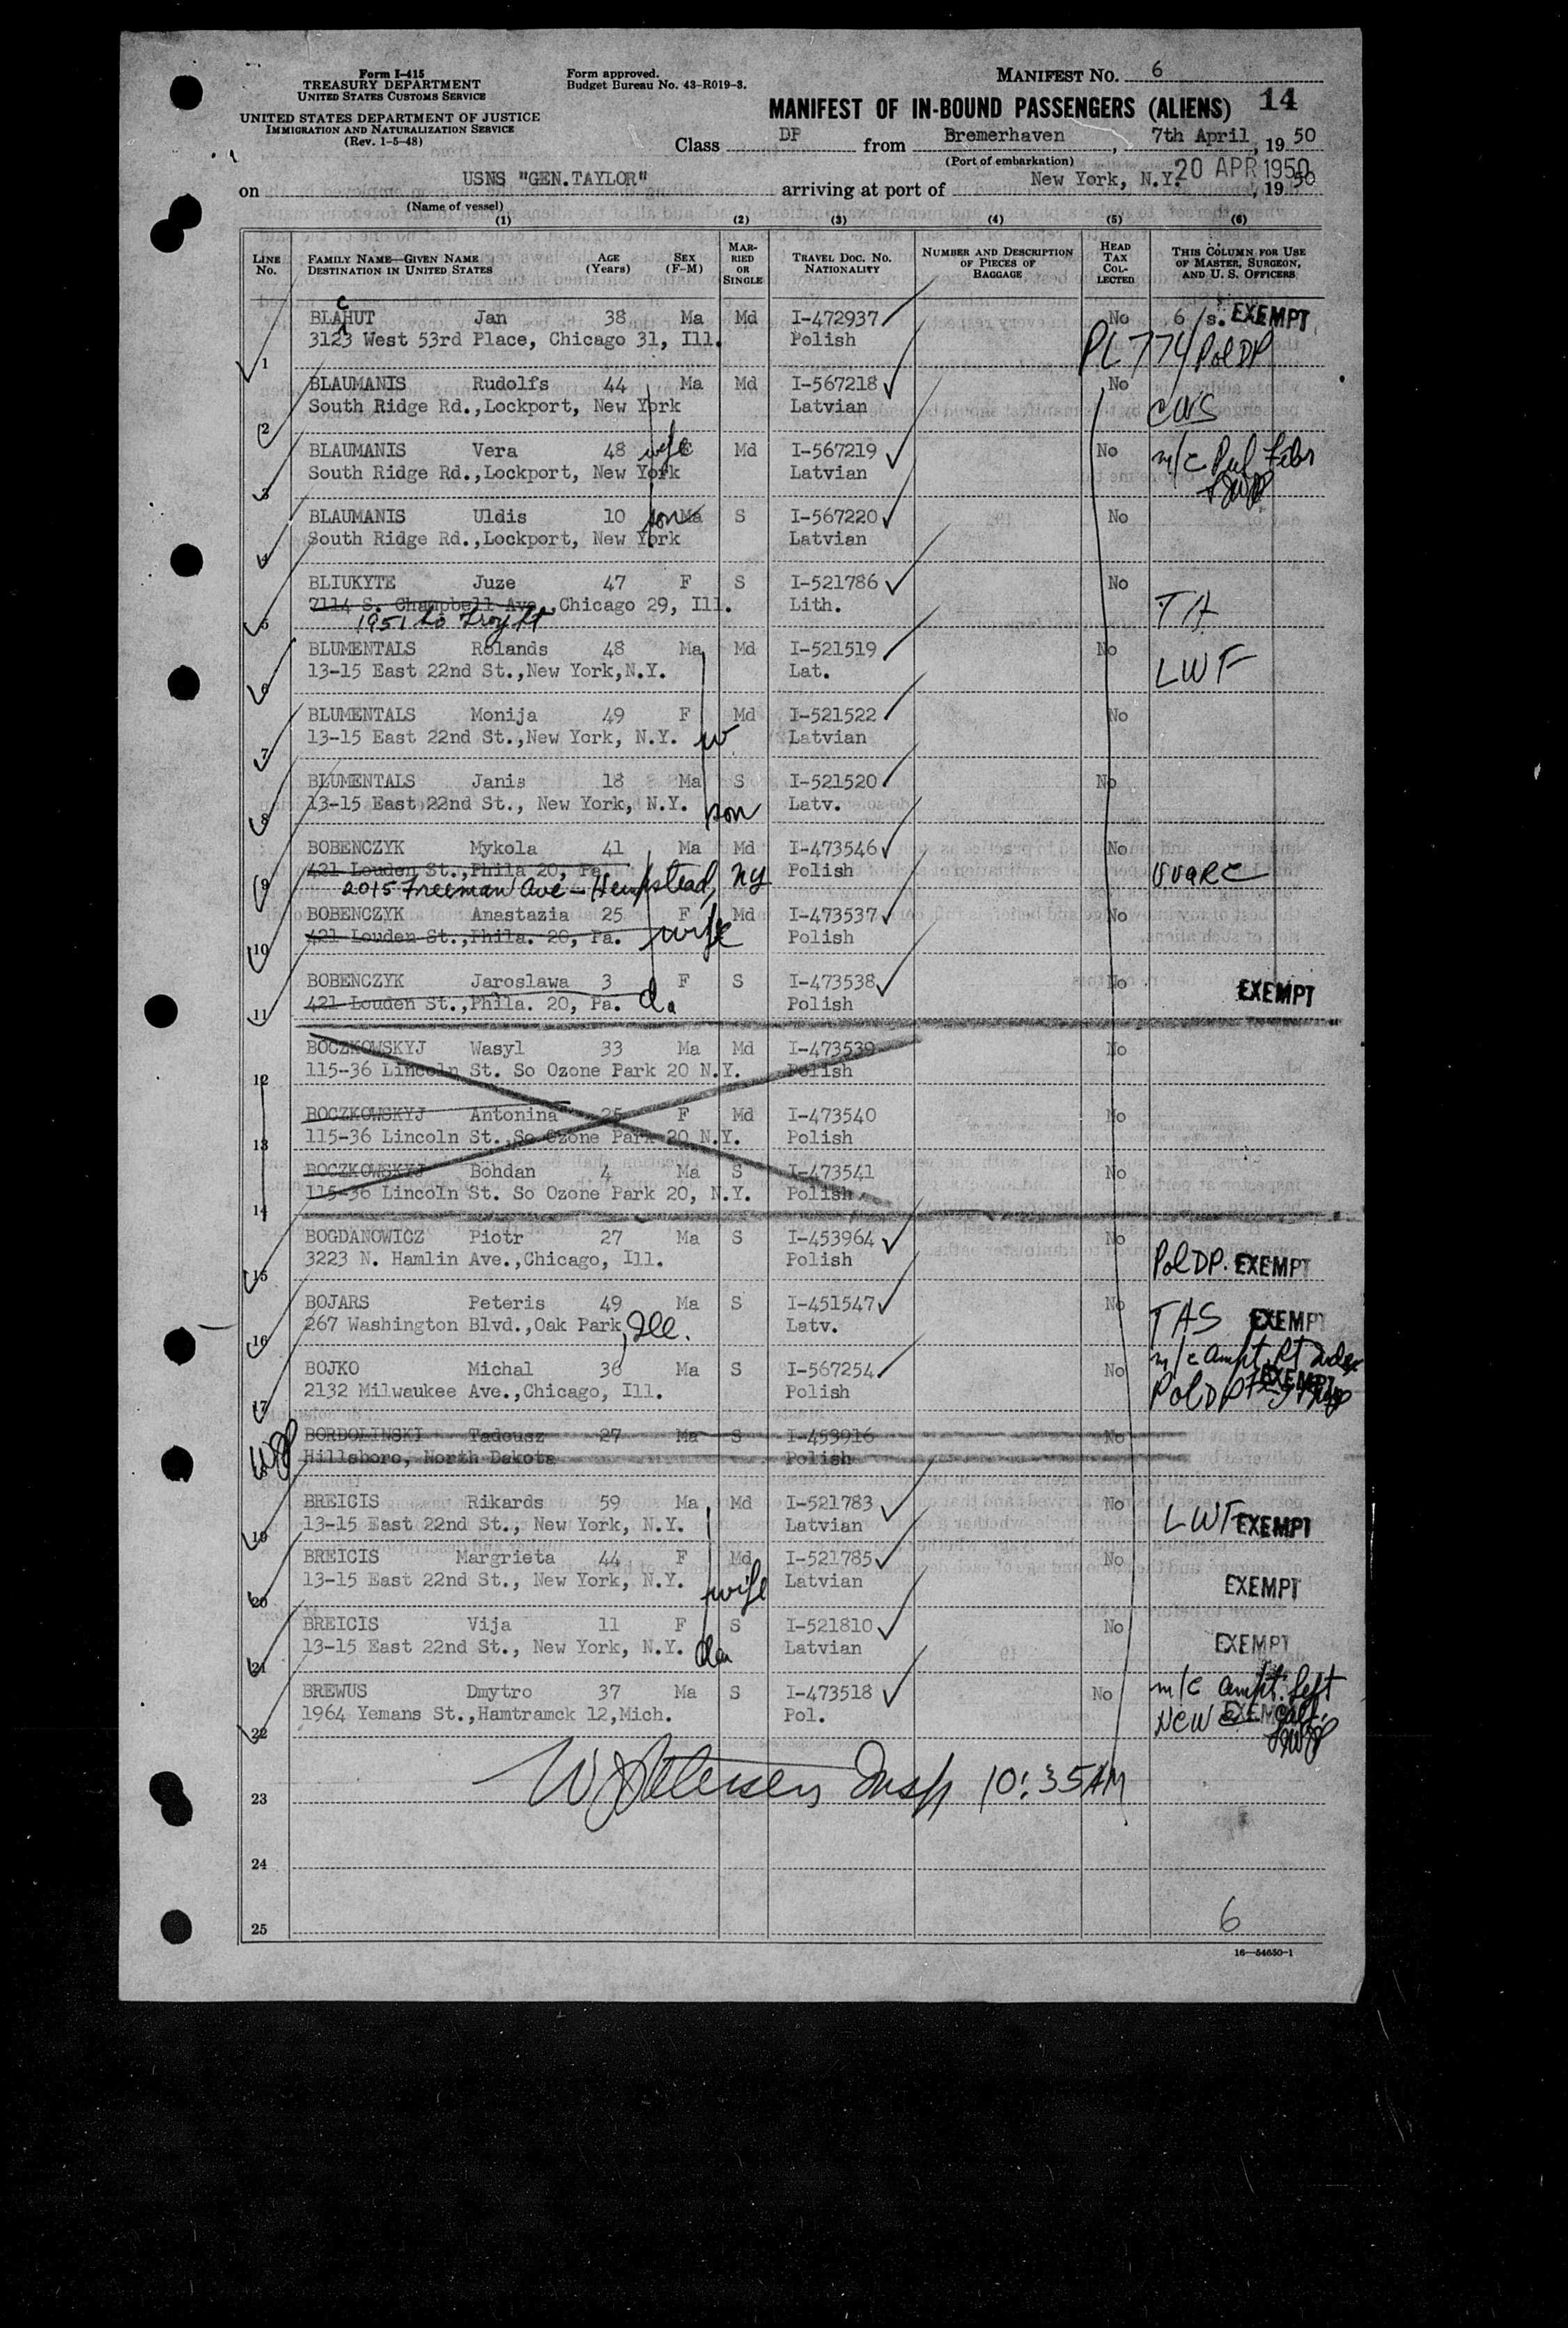 Form I-415
TREASURY DEPARTMENT
UNITED STATES CUSTOMS SERVICE
UNITED STATES DEPARTMENT OF JUSTICE
IMMIGRATION AND NATURALIZATION SERVICE
(Rev. 1-5-48)
Form approved.
Budget Bureau No. 43-R019-3.
MANIFEST NO. 6
MANIFEST OF IN-BOUND PASSENGERS (ALIENS) 14
Class DP from Bremerhaven, 7th April, 1950
(Port of embarkation)
20 APR 1950
on USNS "GEN.TAYLOR" arriving at port of New York, N.Y., 1950
(Name of vessel)
(1) (2) (3) (4) (5) (6)
LINE No. FAMILY NAME—GIVEN NAME DESTINATION IN UNITED STATES AGE (Years) SEX (F-M) MARRIED OR SINGLE TRAVEL DOC. NO. NATIONALITY NUMBER AND DESCRIPTION OF PIECES OF BAGGAGE HEAD TAX COLLECTED THIS COLUMN FOR USE OF MASTER, SURGEON, AND U. S. OFFICERS
c
BLAHUT Jan 38 Ma Md I-472937 No 6 /s. EXEMPT
1 3123 West 53rd Place, Chicago 31, Ill. Polish PL 774 Pol DP
BLAUMANIS Rudolfs 44 Ma Md I-567218 No
2 South Ridge Rd.,Lockport, New York Latvian CWS
BLAUMANIS Vera 48 wife Md I-567219 No m/c
3 South Ridge Rd.,Lockport, New York Latvian
BLAUMANIS Uldis 10 son Ma S I-567220 No
4 South Ridge Rd.,Lockport, New York Latvian
BLIUKYTE Juze 47 F S I-521786 No
5 7114 S. Champbell Ave.,Chicago 29, Ill. Lith. TA
1951
BLUMENTALS Rolands 48 Ma Md I-521519 No
6 13-15 East 22nd St.,New York,N.Y. Lat. LWF
BLUMENTALS Monija 49 F Md I-521522 No
7 13-15 East 22nd St.,New York, N.Y. w Latvian
BLUMENTALS Janis 18 Ma S I-521520 No
8 13-15 East 22nd St., New York, N.Y. son Latv.
BOBENCZYK Mykola 41 Ma Md I-473546 No
9 421 Louden St.,Phila 20, Pa. Polish UUARC
2015 Freeman Ave - Hempstead, NY
BOBENCZYK Anastazia 25 F Md I-473537 No
10 421 Louden St.,Phila. 20, Pa. wife Polish
BOBENCZYK Jaroslawa 3 F S I-473538 No
11 421 Louden St.,Phila. 20, Pa. d. Polish EXEMPT
BOCZKOWSKYJ Wasyl 33 Ma Md I-473539 No
12 115-36 Lincoln St. So Ozone Park 20 N.Y. Polish
BOCZKOWSKYJ Antonina 25 F Md I-473540 No
13 115-36 Lincoln St.,So Ozone Park 20 N.Y. Polish
BOCZKOWSKYJ Bohdan 4 Ma S I-473541 No
14 115-36 Lincoln St. So Ozone Park 20, N.Y. Polish
BOGDANOWICZ Piotr 27 Ma S I-453964 No
15 3223 N. Hamlin Ave.,Chicago, Ill. Polish Pol DP. EXEMPT
BOJARS Peteris 49 Ma S I-451547 No
16 267 Washington Blvd.,Oak Park, Ill. Latv. TAS EXEMPT
BOJKO Michal 36 Ma S I-567254 No m/c ampt. Rt Index
17 2132 Milwaukee Ave.,Chicago, Ill. Polish Pol DP EXEMPT
BORDOLINSKI Tadeusz 27 Ma S I-453916 No
Hillsboro, North Dakota Polish
BREICIS Rikards 59 Ma Md I-521783 No
19 13-15 East 22nd St., New York, N.Y. Latvian LWF EXEMPT
BREICIS Margrieta 44 F Md I-521785 No
20 13-15 East 22nd St., New York, N.Y. wife Latvian EXEMPT
BREICIS Vija 11 F S I-521810 No
21 13-15 East 22nd St., New York, N.Y. da Latvian EXEMPT
BREWUS Dmytro 37 Ma S I-473518 No m/c ampt. left
22 1964 Yemans St.,Hamtramck 12,Mich. Pol. NCWC EXEMPT
Insp 10:35AM
23
24
25 6
16—54650-1